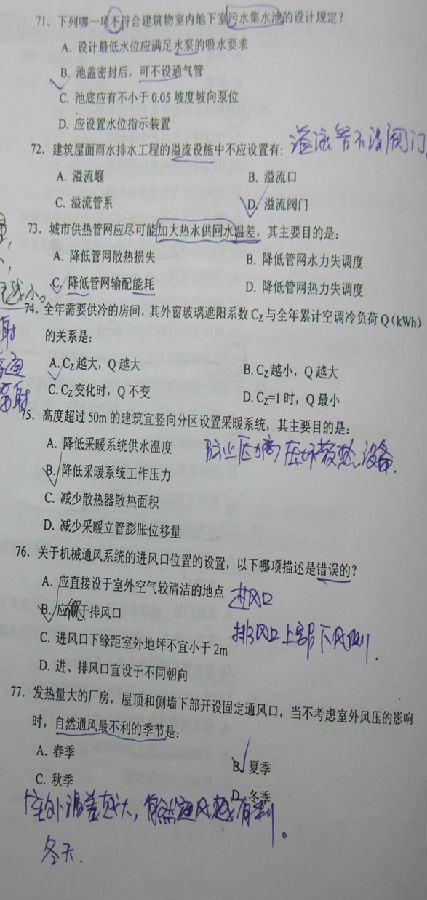 71. 下列哪一项不符合建筑物室内地下室污水集水池的设计规定?
A. 设计最低水位应满足水泵的吸水要求
B. 池盖密封后，可不设通气管
C. 池底应有不小于 0.05 坡度坡向泵位
D. 应设置水位指示装置
72. 建筑屋面雨水排水工程的溢流设施中不应设置有: 溢流管不设阀门
A. 溢流堰 B. 溢流口
C. 溢流管系 D. 溢流阀门
73. 城市供热管网应尽可能加大热水供回水温差，其主要目的是:
A. 降低管网散热损失 B. 降低管网水力失调度
C. 降低管网输配能耗 D. 降低管网热力失调度
74. 全年需要供冷的房间，其外窗玻璃遮阳系数 C₂ 与全年累计空调冷负荷 Q（kWh）
的关系是:
A. C₂ 越大，Q 越大 B. C₂ 越小，Q 越大
C. C₂ 变化时，Q 不变 D. C₂=1 时，Q 最小
75. 高度超过 50m 的建筑宜竖向分区设置采暖系统，其主要目的是:
A. 降低采暖系统供水温度
B. 降低采暖系统工作压力
C. 减少散热器散热面积
D. 减少采暖立管膨胀位移量
76. 关于机械通风系统的进风口位置的设置，以下哪项描述是错误的?
A. 应直接设于室外空气较清洁的地点 进风口
B. 应高于排风口
C. 进风口下缘距室外地坪不宜小于 2m
D. 进、排风口宜设于不同朝向
77. 发热量大的厂房，屋顶和侧墙下部开设固定通风口，当不考虑室外风压的影响
时，自然通风最不利的季节是:
A. 春季 B. 夏季
C. 秋季 D. 冬季
室外温差越大，自然通风越有利。
冬天.